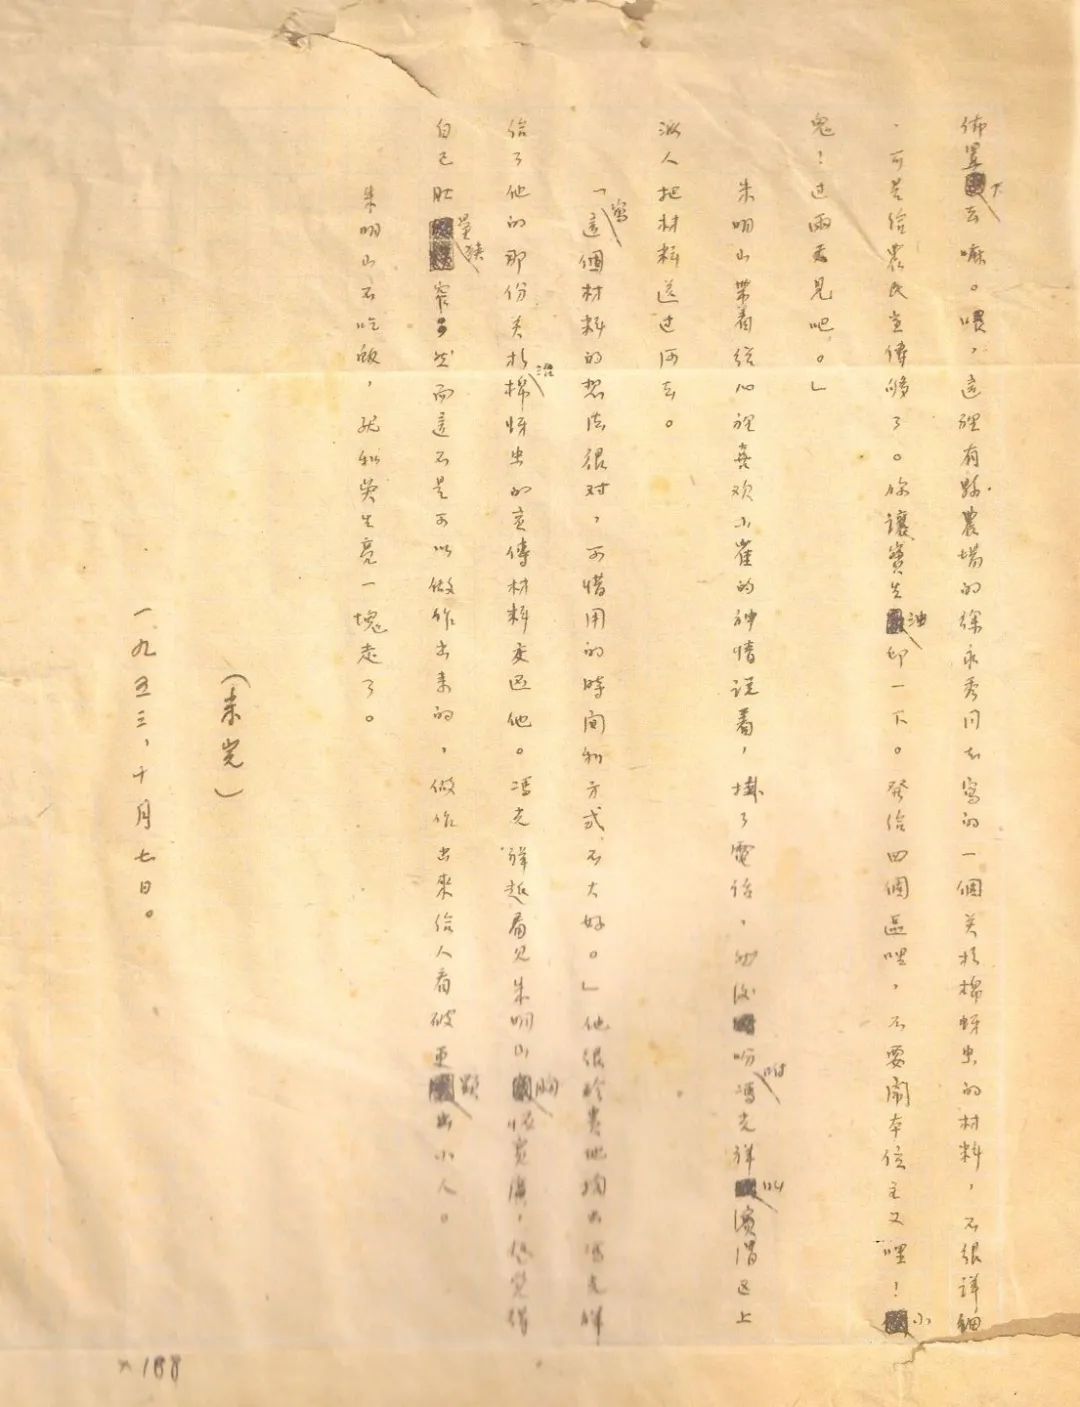 佈置下去嘛。喂，這裡有縣農場的徐永秀同志寫的一個关於棉蚜虫的材料，不很詳細
，可是给農民宣傳够了。你讓寶生油印一下。發给四個區哩，不要鬧本位主义哩！小
鬼！过兩天見吧。」
朱明山帶着從心裡喜欢小崔的神情説着，掛了電話，吩咐馮光祥叫濱渭区上
派人把材料送过河去。
「這個材料寫的想法很对，可惜用的時间和方式不大好。」他很
给了他的那份关於治棉蚜虫的宣傳材料交還他。馮光祥越看见朱明山胸怀寬廣，
自己肚量狹窄；然而這不是可以做作出来的，做作出來给人看破更顯出小人。
朱明山不吃飯，就和吳生亮一塊走了。
（未完）
一九五三，十月七日。
188